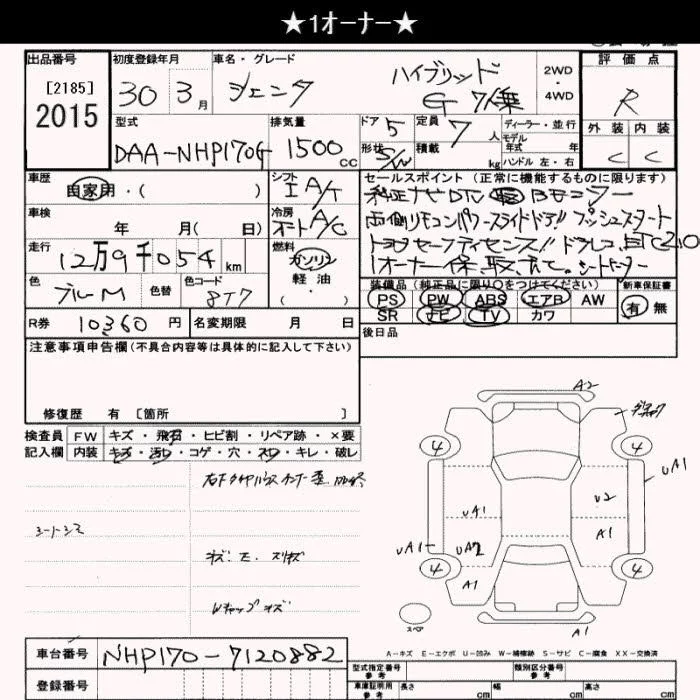 ★1オーナー★
出品番号
[2185]
2015
初度登録年月
30年 3月
車名・グレード
シエンタ
ハイブリッド
G 7人乗
2WD
・
4WD
評価点
R
外装 内装
C C
型式
DAA-NHP170G
排気量
1500 CC
ドア 5
形状 S/W
定員 7人
積載 kg
ディーラー・並行
モデル年式 年
ハンドル 左・右
車歴
自家用・( )
シフト
I A/T
セールスポイント (正常に機能するものに限ります)
純正ナビ DTV Bモニター
両側リモコンパワースライドドア!! プッシュスタート
トヨタセーフティセンス!! ドラレコ、ETC2.0
1オーナー 保、取、有て。シートヒーター
車検
年 月( 日)
冷房
オート A/C
走行
12万9千054km
燃料
ガソリン
軽油
・
( )
色
ブルーM
色替
色コード
8T7
装備品 (純正品に限り○をつけてください)
PS PW ABS エアB AW
SR ナビ TV カワ
新車保証書
有 無
R券 10360円
名変期限 月 日
後日品
注意事項申告欄(不具合内容等は具体的に記入して下さい)
修復歴 有 [箇所 ]
検査員記入欄
FW キズ・飛石・ヒビ割・リペア跡・×要
内装 キズ・汚レ・コゲ・穴・スレ・キレ・破レ
シートシミ
キズ・E・スリキズ
Wキャップキズ
A2
4 4
UA1
UA1
U2
A1
UA1
UA2
4 4
A1
スペア
A1
A-キズ E-エクボ U-凹み W-補修跡 S-サビ C-腐食 XX-交換済
車台番号 NHP170-7120882
登録番号
型式指定番号
参考
類別区分番号
参考
車庫証明用
参考
長さ cm 幅 cm 高さ cm